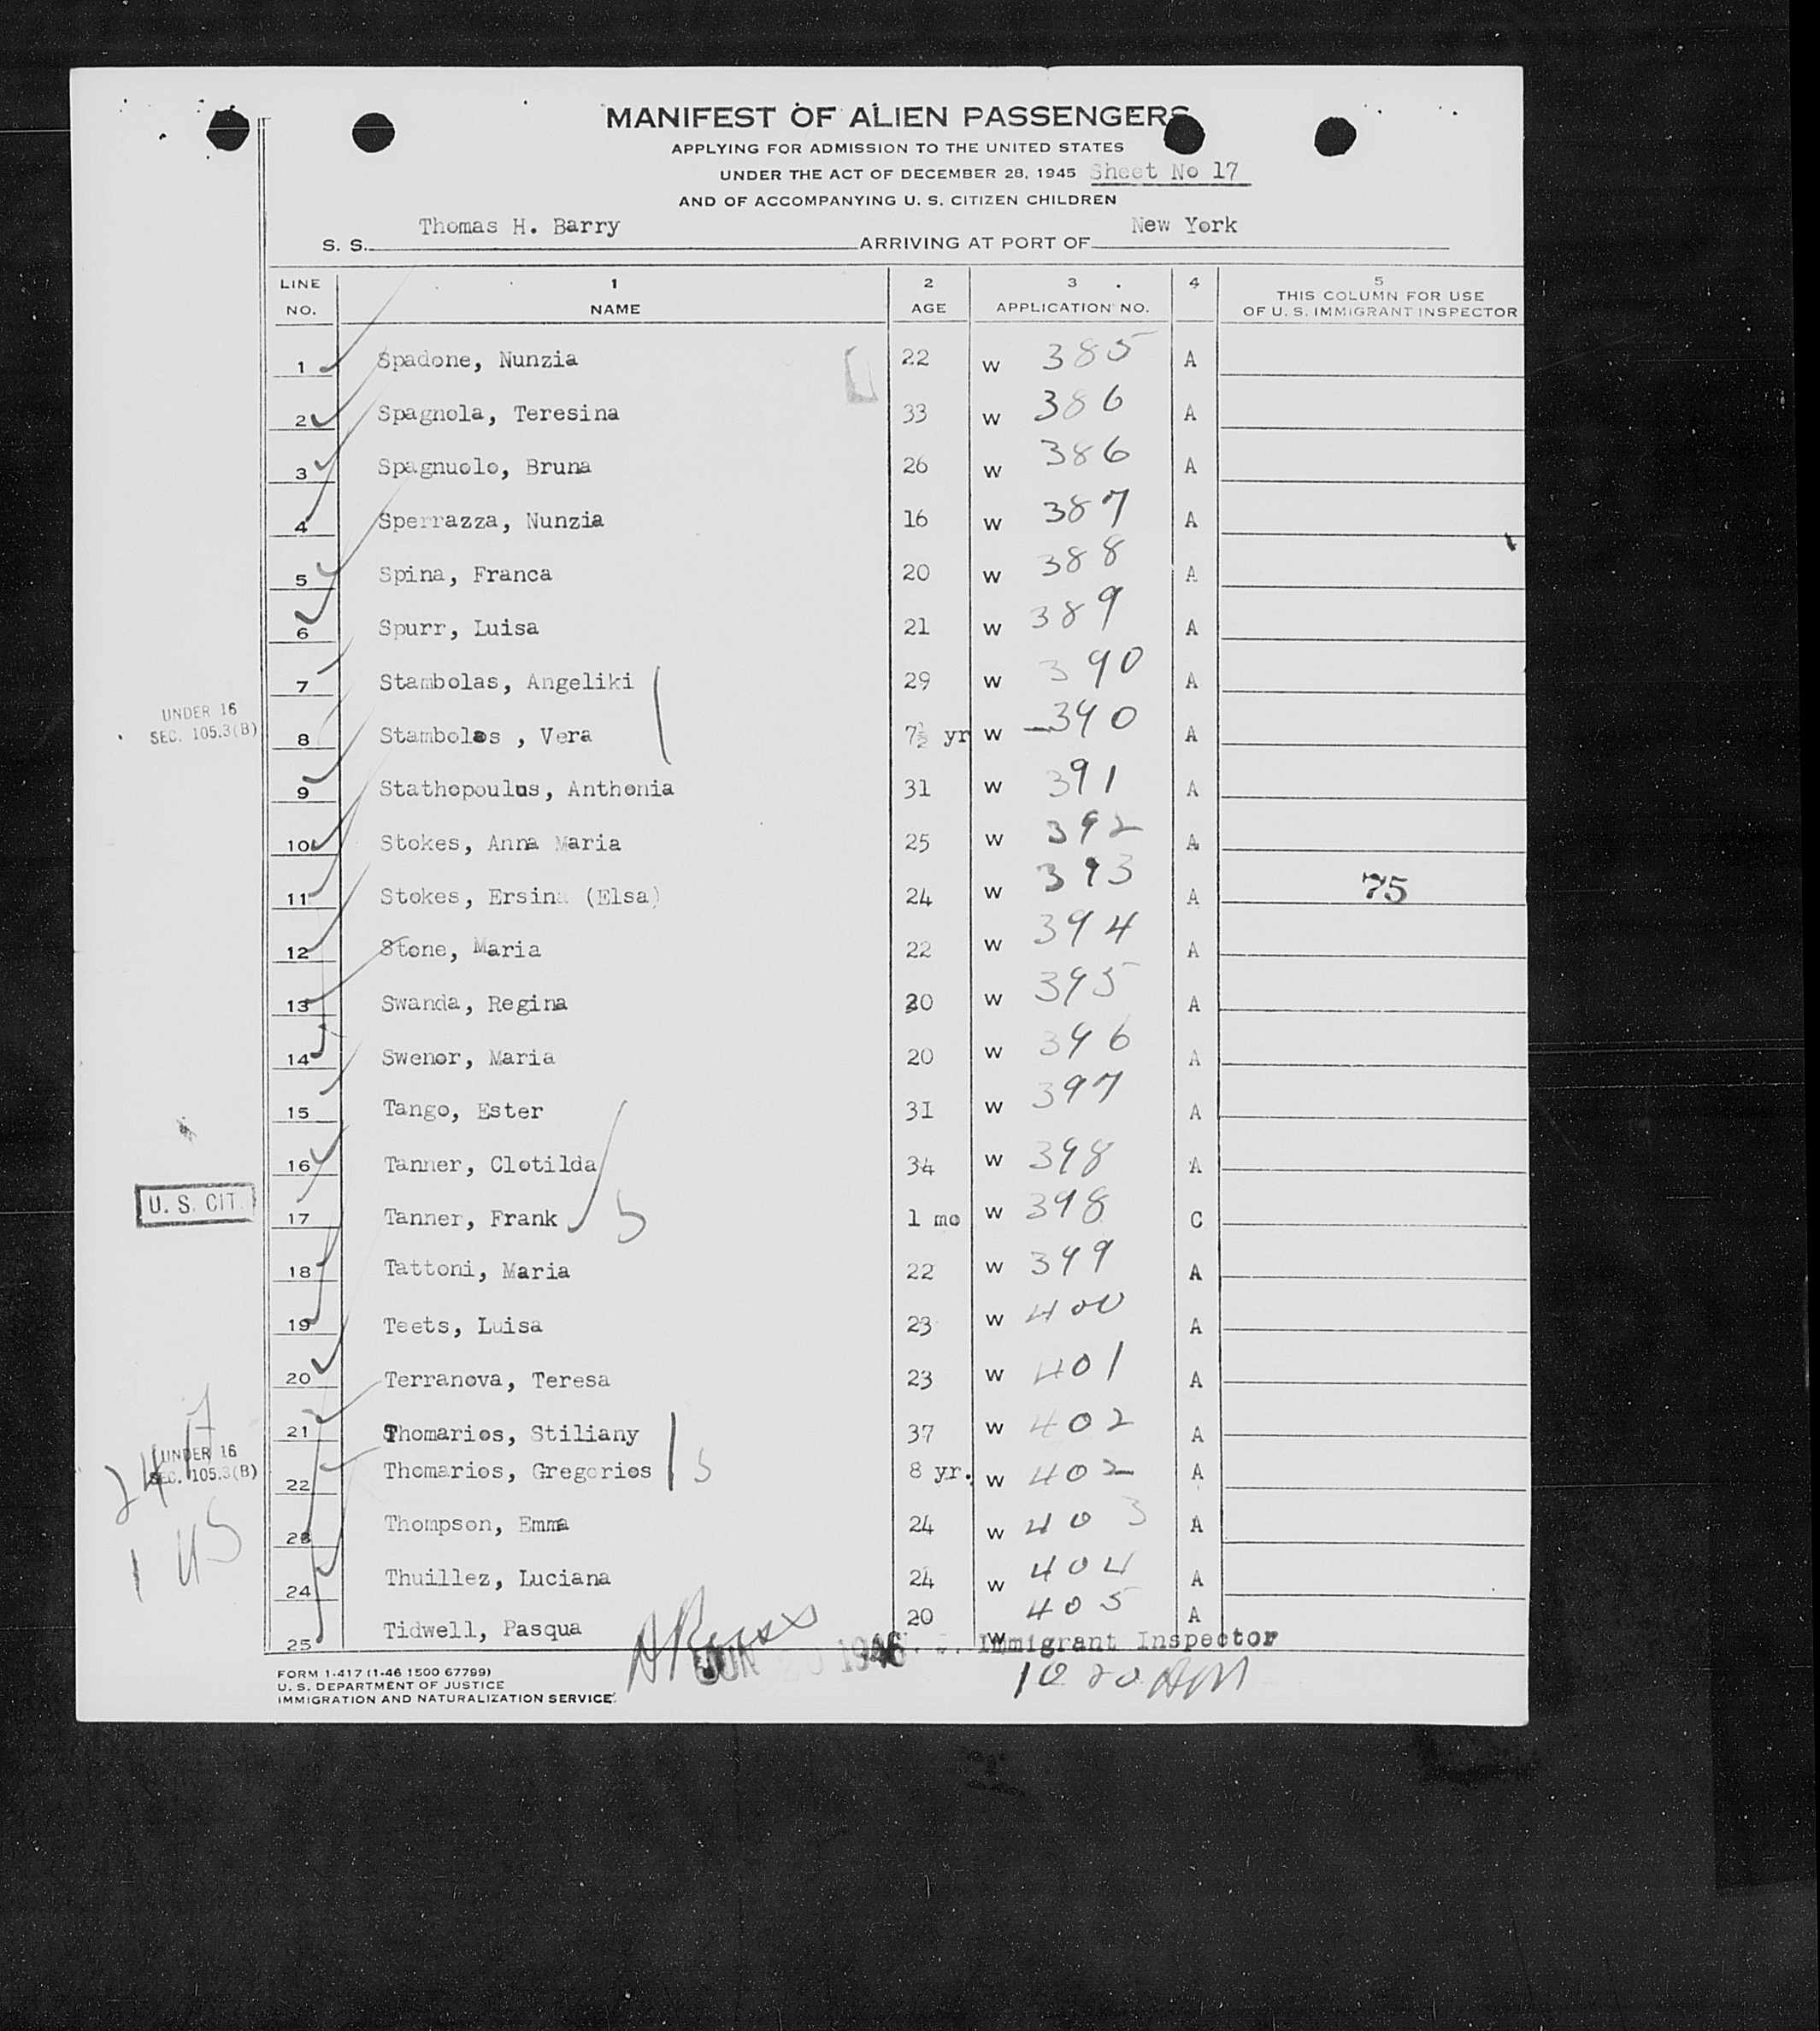 MANIFEST OF ALIEN PASSENGERS
APPLYING FOR ADMISSION TO THE UNITED STATES
UNDER THE ACT OF DECEMBER 28, 1945 Sheet No 17
AND OF ACCOMPANYING U. S. CITIZEN CHILDREN
S. S. Thomas H. Barry ARRIVING AT PORT OF New York
LINE NO. 1 NAME 2 AGE 3 APPLICATION NO. 4 5 THIS COLUMN FOR USE OF U. S. IMMIGRANT INSPECTOR
1 Spadone, Nunzia 22 W 385 A
2 Spagnola, Teresina 33 W 386 A
3 Spagnuolo, Bruna 26 W 386 A
4 Sperrazza, Nunzia 16 W 387 A
5 Spina, Franca 20 W 388 A
6 Spurr, Luisa 21 W 389 A
7 Stambolas, Angeliki 29 W 390 A
UNDER 16 SEC. 105.3(B) 8 Stambolas , Vera 7½ yr W 390 A
9 Stathopoulus, Anthonia 31 W 391 A
10 Stokes, Anna Maria 25 W 392 A
11 Stokes, Ersina (Elsa) 24 W 393 A 75
12 Stone, Maria 22 W 394 A
13 Swanda, Regina 30 W 395 A
14 Swenor, Maria 20 W 396 A
15 Tango, Ester 31 W 397 A
16 Tanner, Clotilda 34 W 398 A
U. S. CIT. 17 Tanner, Frank 1 mo W 398 C
18 Tattoni, Maria 22 W 399 A
19 Teets, Luisa 23 W 400 A
20 Terranova, Teresa 23 W 401 A
21 Thomarios, Stiliany 37 W 402 A
UNDER 16 SEC. 105.3(B) 22 Thomarios, Gregorios 8 yr. W 402 A
23 Thompson, Emma 24 W 403 A
24 Thuillez, Luciana 24 W 404 A
25 Tidwell, Pasqua 20 W 405 A
24
1 US
JUN 20 1946 Immigrant Inspector
10 20 AM
FORM 1-417 (1-46 1500 67799)
U. S. DEPARTMENT OF JUSTICE
IMMIGRATION AND NATURALIZATION SERVICE